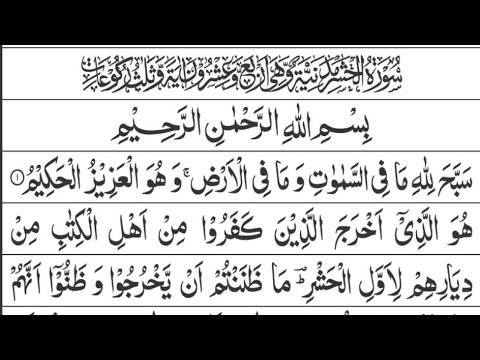 سُوْرَةُ الْحَشْرِ مَدَنِيَّةٌ وَّهِىَ اَرْبَعٌ وَّعِشْرُوْنَ اٰيَةً وَّثَلٰثُ رُكُوْعَاتٍ
بِسْمِ اللّٰهِ الرَّحْمٰنِ الرَّحِيْمِ
سَبَّحَ لِلّٰهِ مَا فِى السَّمٰوٰتِ وَ مَا فِى الْاَرْضِ ۚ وَ هُوَ الْعَزِيْزُ الْحَكِيْمُ ۝۱
هُوَ الَّذِىْۤ اَخْرَجَ الَّذِيْنَ كَفَرُوْا مِنْ اَهْلِ الْكِتٰبِ مِنْ
دِيَارِهِمْ لِاَوَّلِ الْحَشْرِ ؕ مَا ظَنَنْتُمْ اَنْ يَّخْرُجُوْا وَ ظَنُّوْۤا اَنَّهُمْ